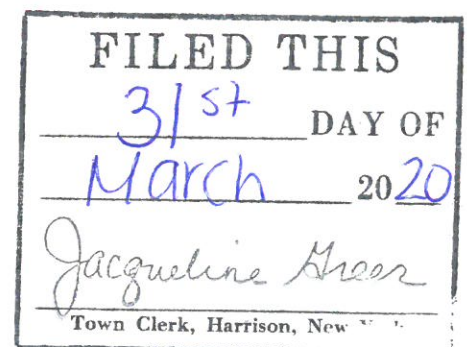 FILED THIS
31st DAY OF
March 2020
Jacqueline Greer
Town Clerk, Harrison, New